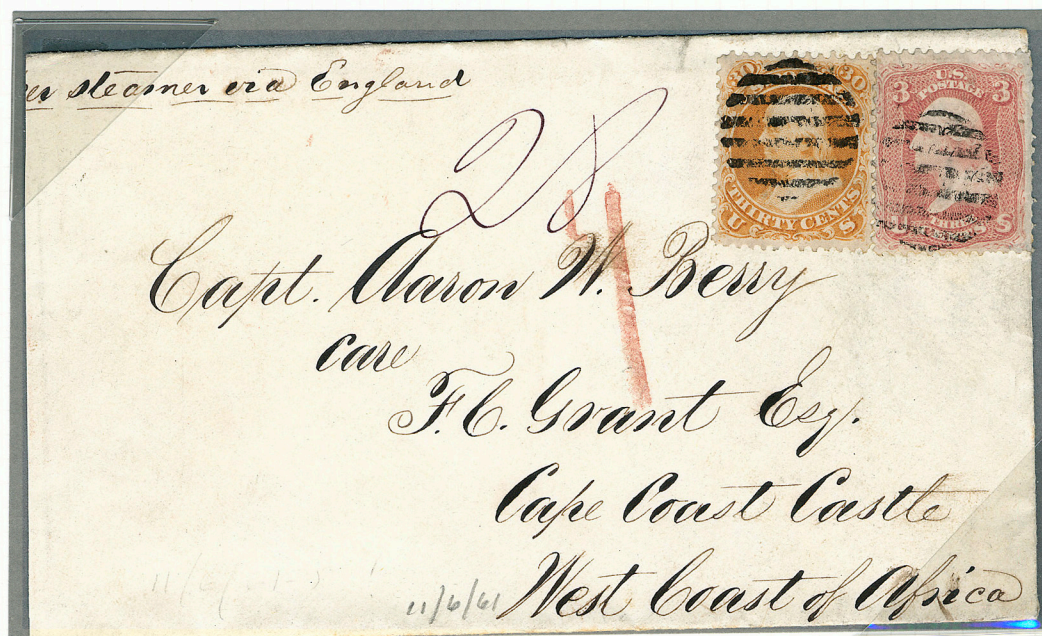 er steamer via England
28
4
30 30
THIRTY CENTS
U S
U.S.
3 POSTAGE 3
Capt. Aaron W. Berry
care
F. C. Grant Esq.
Cape Coast Castle
West Coast of Africa
11/6/61